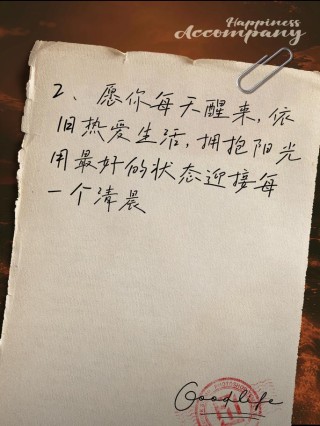 Happiness
Accompany
2、愿你每天醒来,依
旧热爱生活,拥抱阳光
用最好的状态迎接每
一个清晨
Goodlife